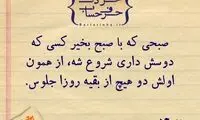 حرف
حساب
صبحی که با صبح بخیر کسی که
دوسش داری شروع شه، از همون
اولش دو هیچ از بقیه روزا جلوس.